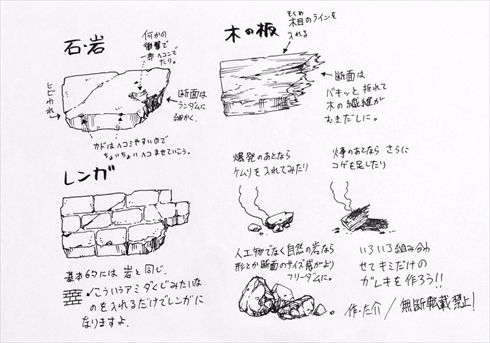 石・岩
何かの
衝撃で
一部ヘコんで
たり。
ヒビわれ
断面は
ランダムに
細かく。
カドはヘコミやすいので
ちょいちょいヘコませていこう。
木の板
もくめ
木目のラインを
入れる
断面は
バキッと折れて
木の繊維が
むきだしに。
レンガ
基本的には岩と同じ。
こういうアミダくじみたいな
のを入れるだけでレンガに
なりますよ。
爆発のあとなら
ケムリを入れてみたり
火事のあとなら さらに
コゲを足したり
人工物でなく自然の岩なら
形とか断面のサイズ感がより
フリーダムに。
いろいろ組み合わ
せてキミだけの
ガレキを作ろう!!
作・た介/無断転載禁止!